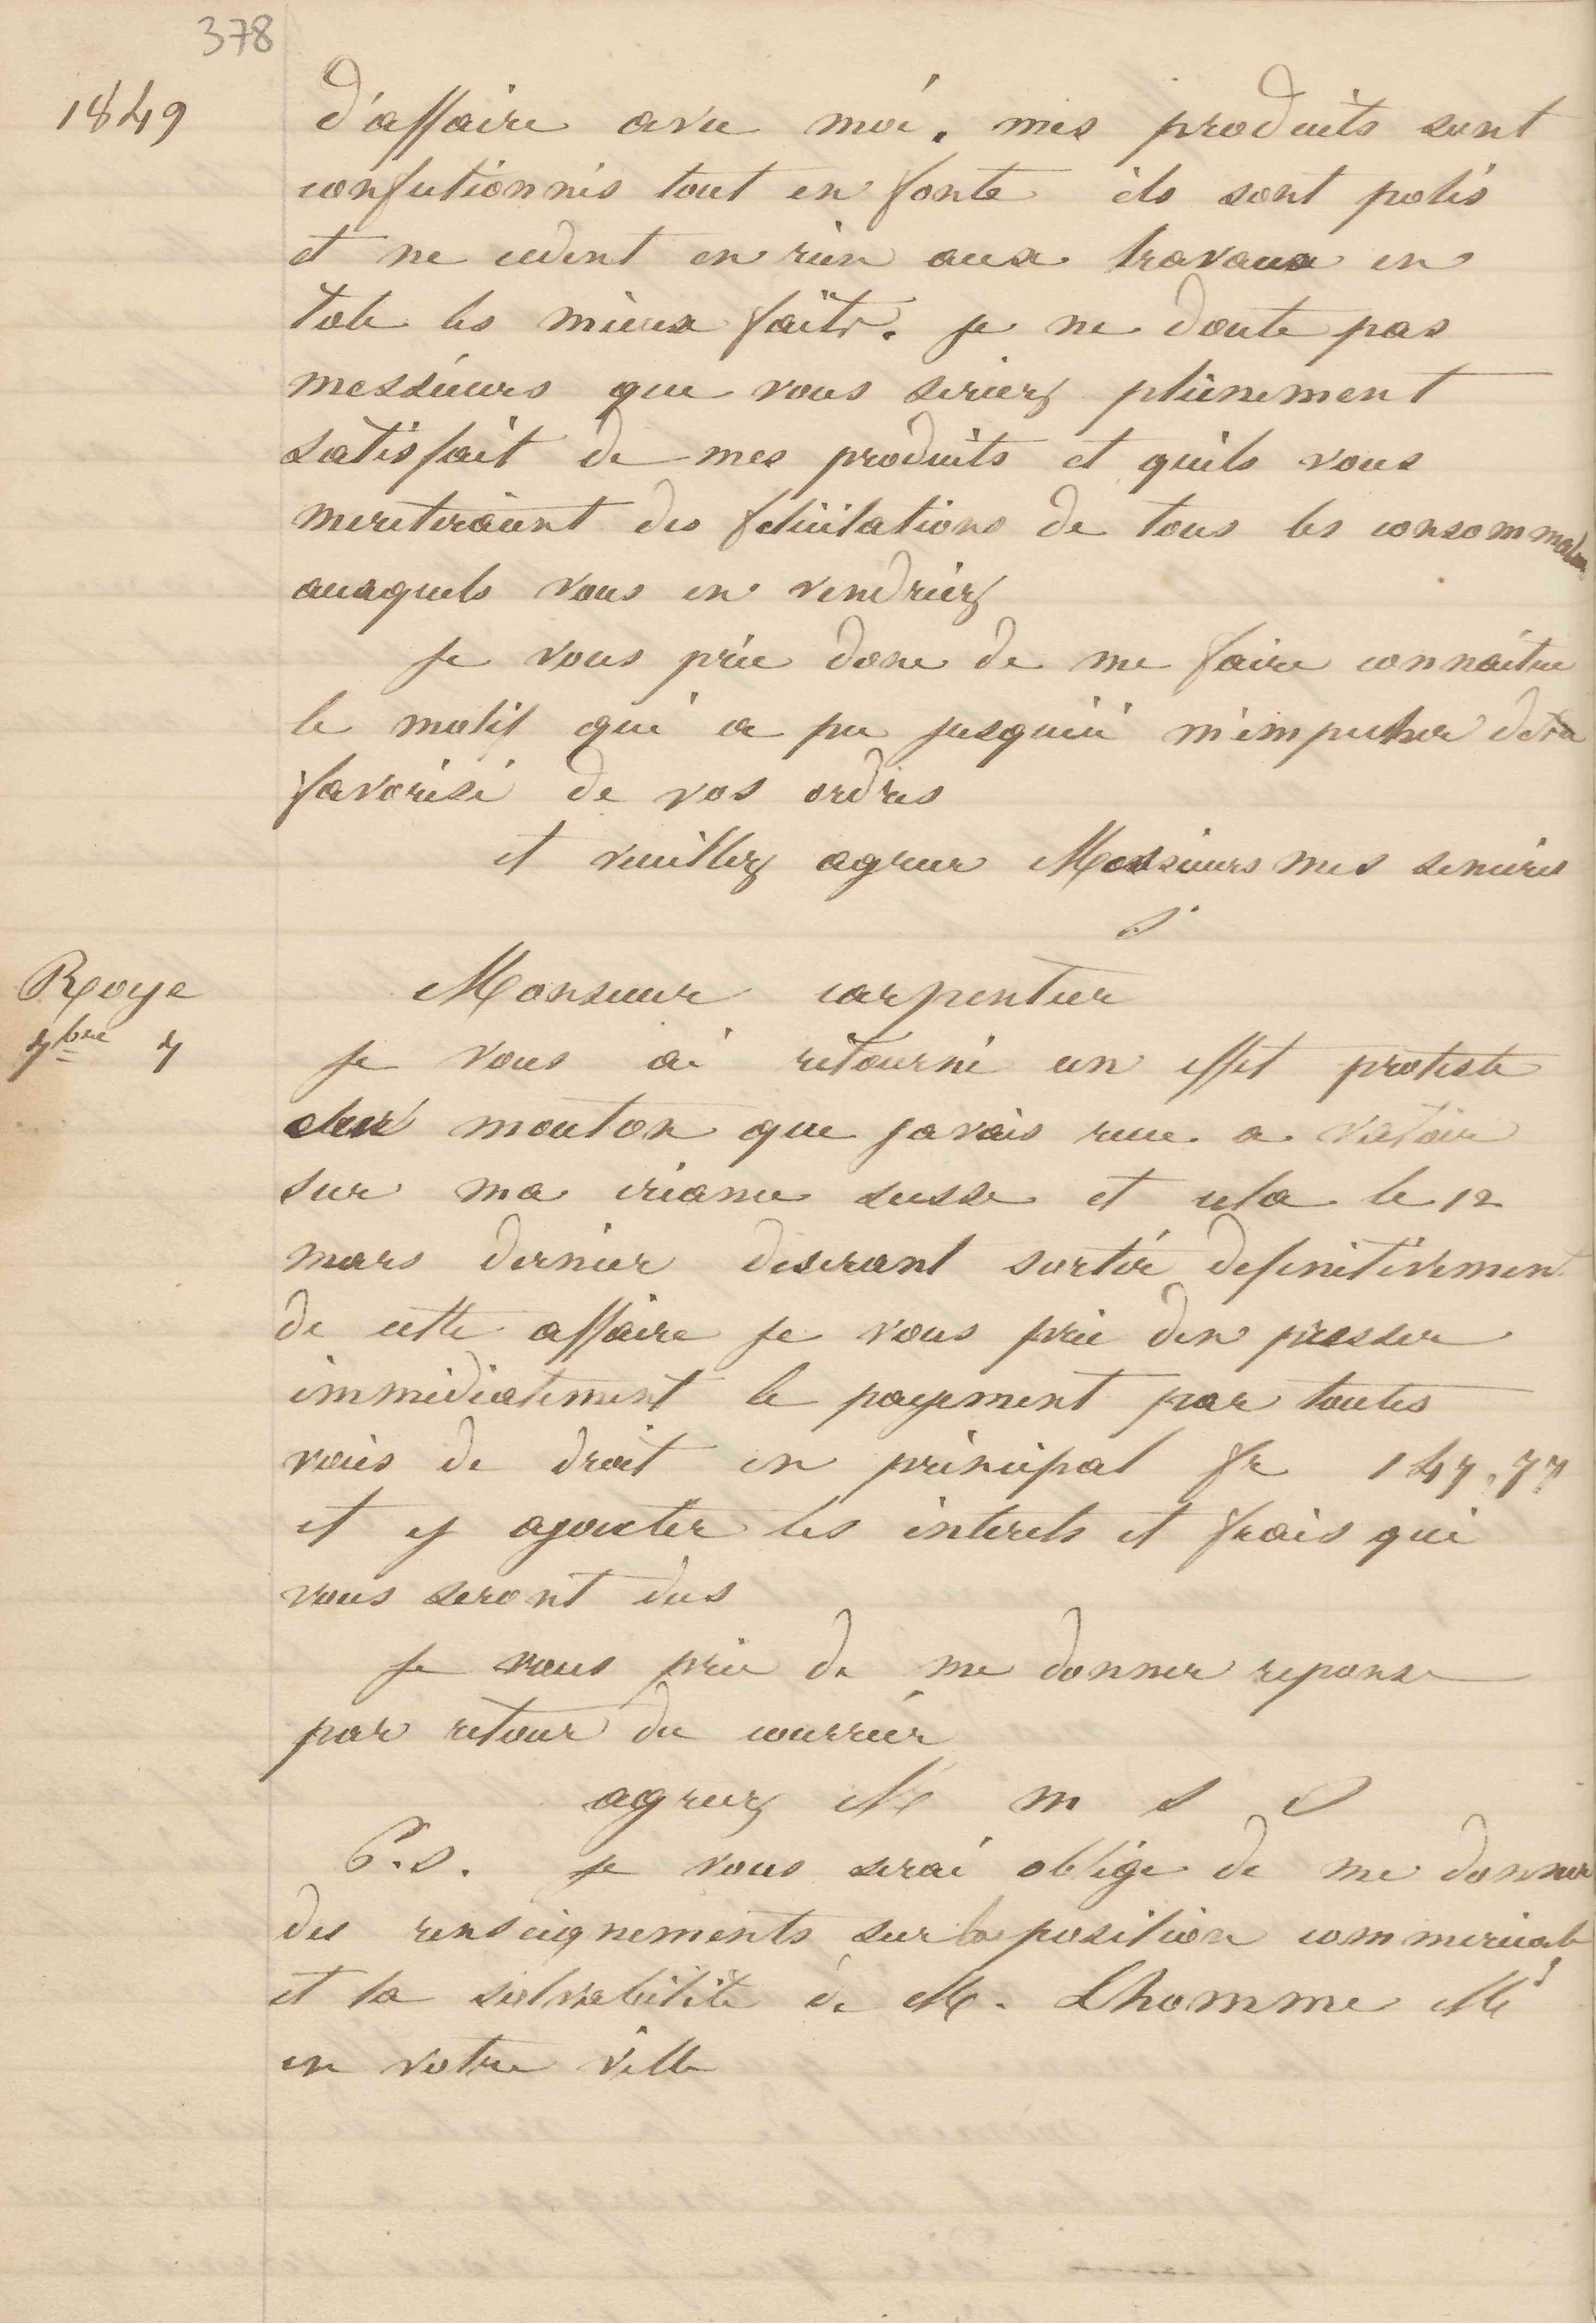 378
1849
d'affaire avec moi. mes produits sont
confectionnés tout en fonte ils sont polis
et ne cedent en rien aux travaux en
tole les mieux faits. je ne doute pas
messieurs que vous seriez pleinement
satisfait de mes produits et quils vous
meriteraient des felicitations de tous les consommateurs
auxquels vous en vendriez
je vous prie donc de me faire connaitre
le motif qui a pu jusquici m'empecher detre
favorisé de vos ordres
et veuillez agreer Messieurs mes sinceres
s
Roye
7bre 7
Monsieur carpentier
je vous ai retourné un effet protesté
chez mouton que javais recu a valoir
sur ma créance susse et cela le 12
mars dernier desirant sortir definitivement
de cette affaire je vous prie den presser
immédiatement le payement par toutes
voies de droit en principal fr 147,77
et y ajouter les interets et frais qui
vous seront dus
je vous prie de me donner reponse
par retour du courrier
agreez M m s s
P.S. je vous serai obligé de me donner
des renseignements sur la position commerciale
et la solvabilité de M. Lhomme Md
en votre ville